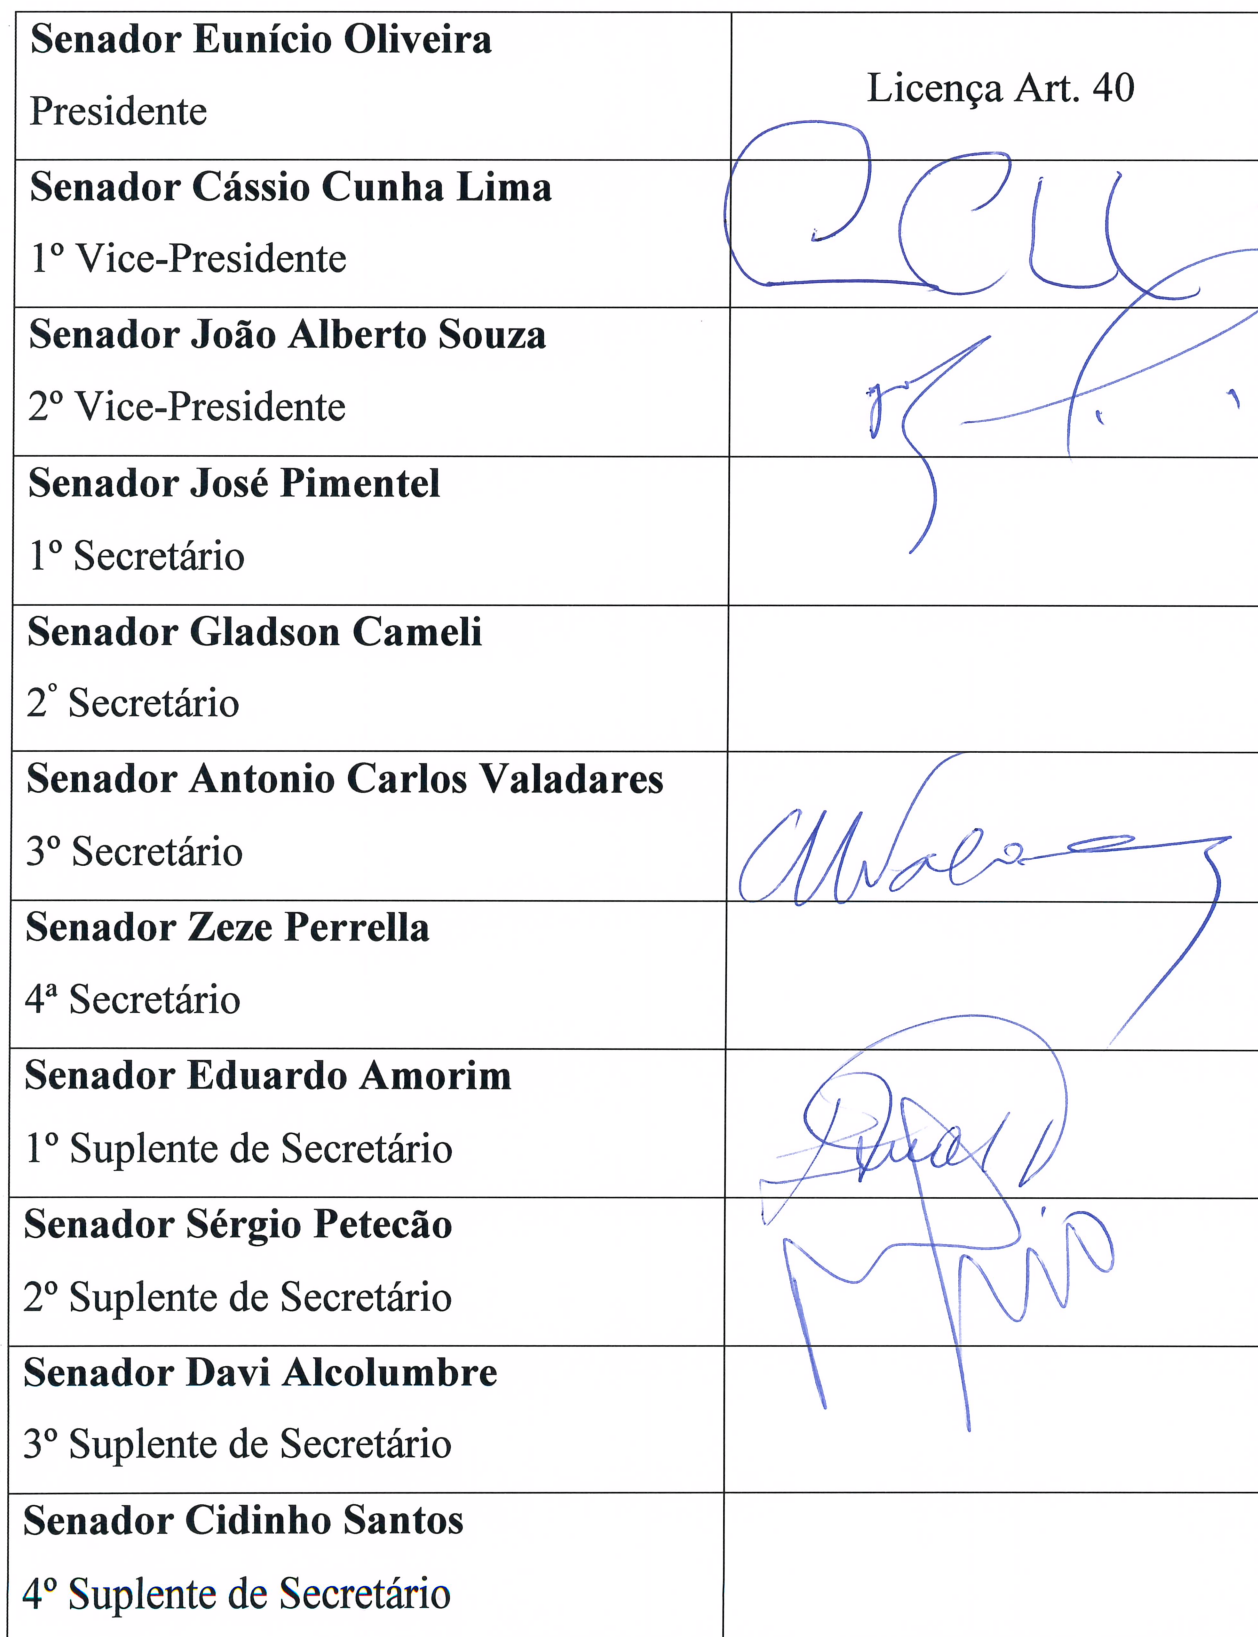 Senador Eunício Oliveira
Presidente
Licença Art. 40
Senador Cássio Cunha Lima
1º Vice-Presidente
Senador João Alberto Souza
2º Vice-Presidente
Senador José Pimentel
1º Secretário
Senador Gladson Cameli
2º Secretário
Senador Antonio Carlos Valadares
3º Secretário
Senador Zeze Perrella
4ª Secretário
Senador Eduardo Amorim
1º Suplente de Secretário
Senador Sérgio Petecão
2º Suplente de Secretário
Senador Davi Alcolumbre
3º Suplente de Secretário
Senador Cidinho Santos
4º Suplente de Secretário